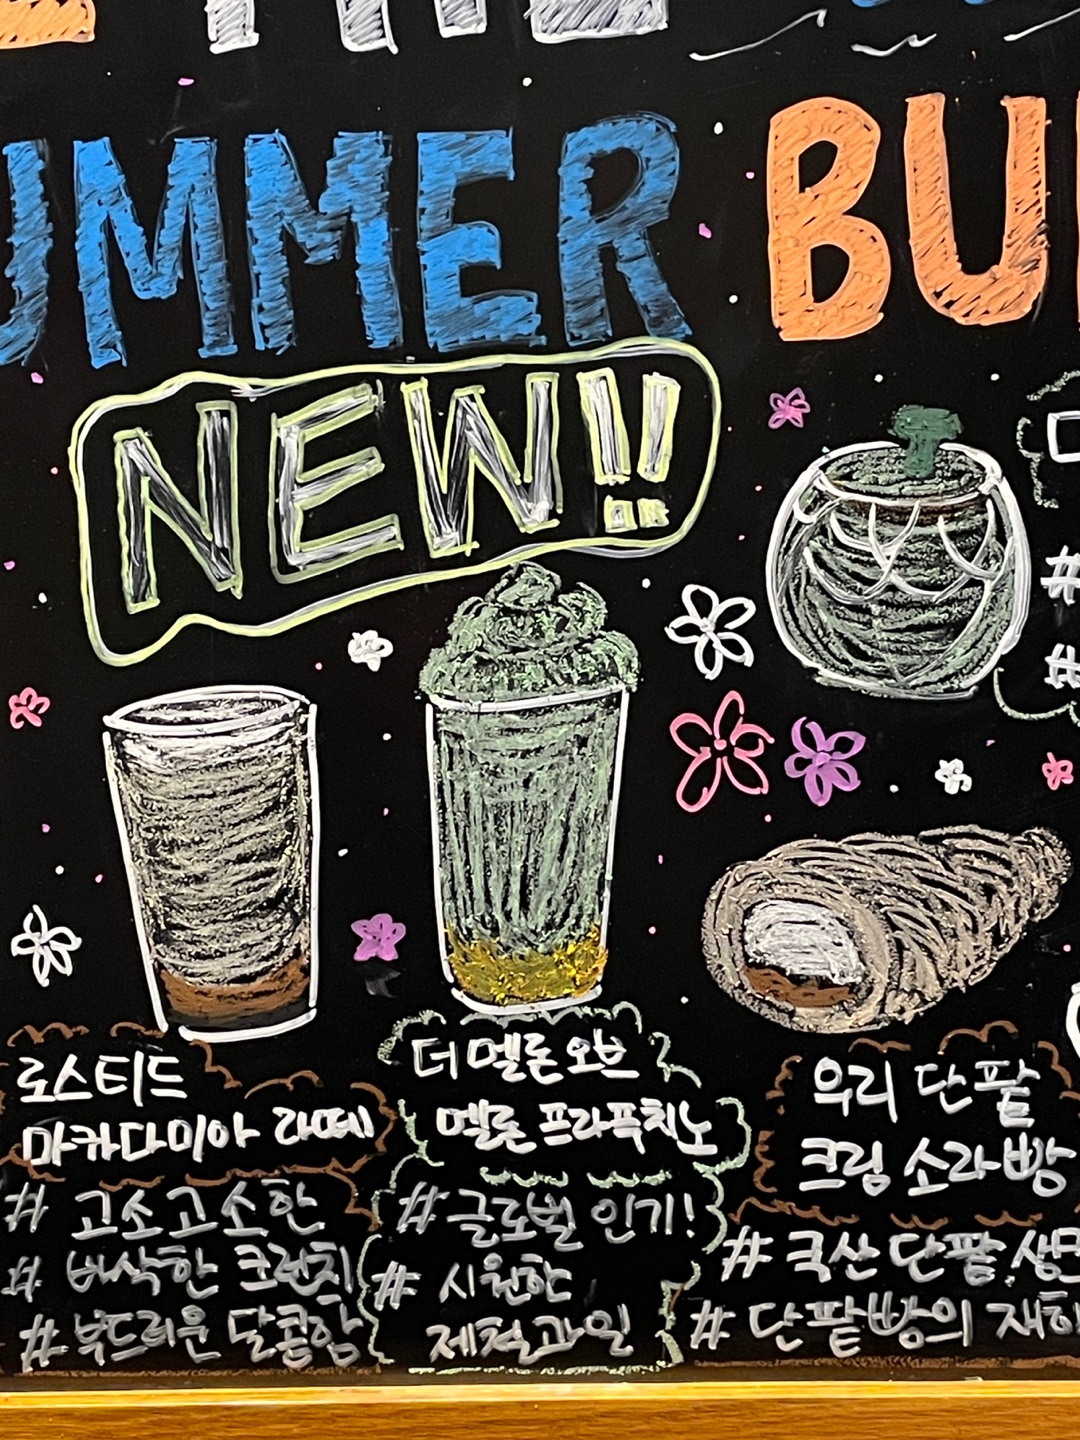 UMMER BU
NEW!!
로스티드
마카다미아 라떼
# 고소고소한
# 바삭한 크런치
# 부드러운 달콤함
더 멜론 오브
멜론 프라푸치노
# 글로벌 인기!
# 시원한
제철과일
우리 단팥
크림 소라빵
# 국산 단팥
# 단팥빵의
#
#